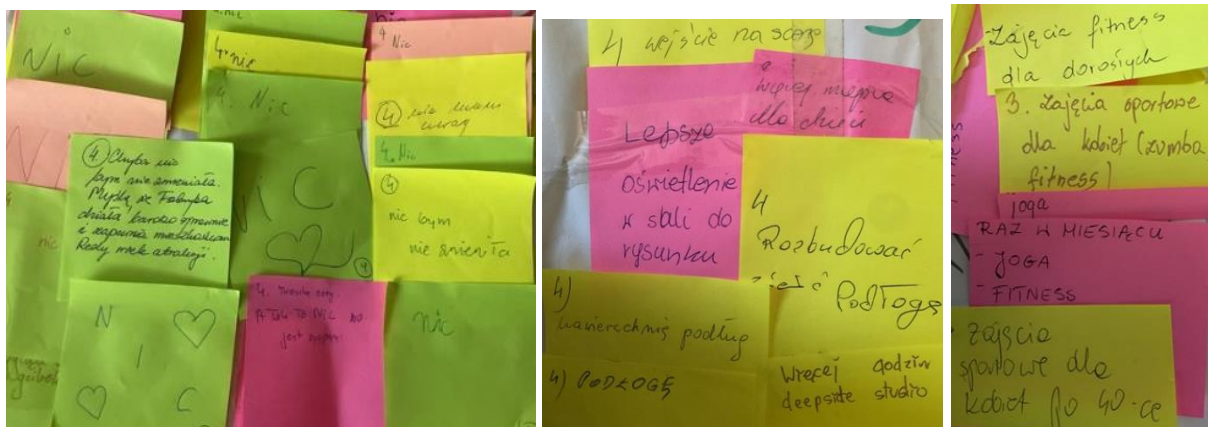 NIC
4. nic
4. Nic
4. Nic
4 nie mam
uwag
4. Nic
N
4. Chyba nic
bym nie zmieniała.
Myślę, że Fabryka
działa bardzo sprawnie
i zapewnia mieszkańcom
atrakcji.
NIC
4
4
nic bym
nie zmieniła
nic
N
I
C
4.
nic
4 wejście na scenę
Więcej miejsca
dla dzieci
Lepsze
oświetlenie
w sali do
rysunku
4
Rozbudować
Podłogę
4)
nawierzchnię podług
4) PODŁOGĘ
Więcej godzin
deepsite studio
- Zajęcia fitness
dla dorosłych
3. Zajęcia sportowe
dla kobiet (zumba
fitness)
joga
RAZ W MIESIĄCU
- JOGA
- FITNESS
- zajęcia
sportowe dla
kobiet po 40-ce